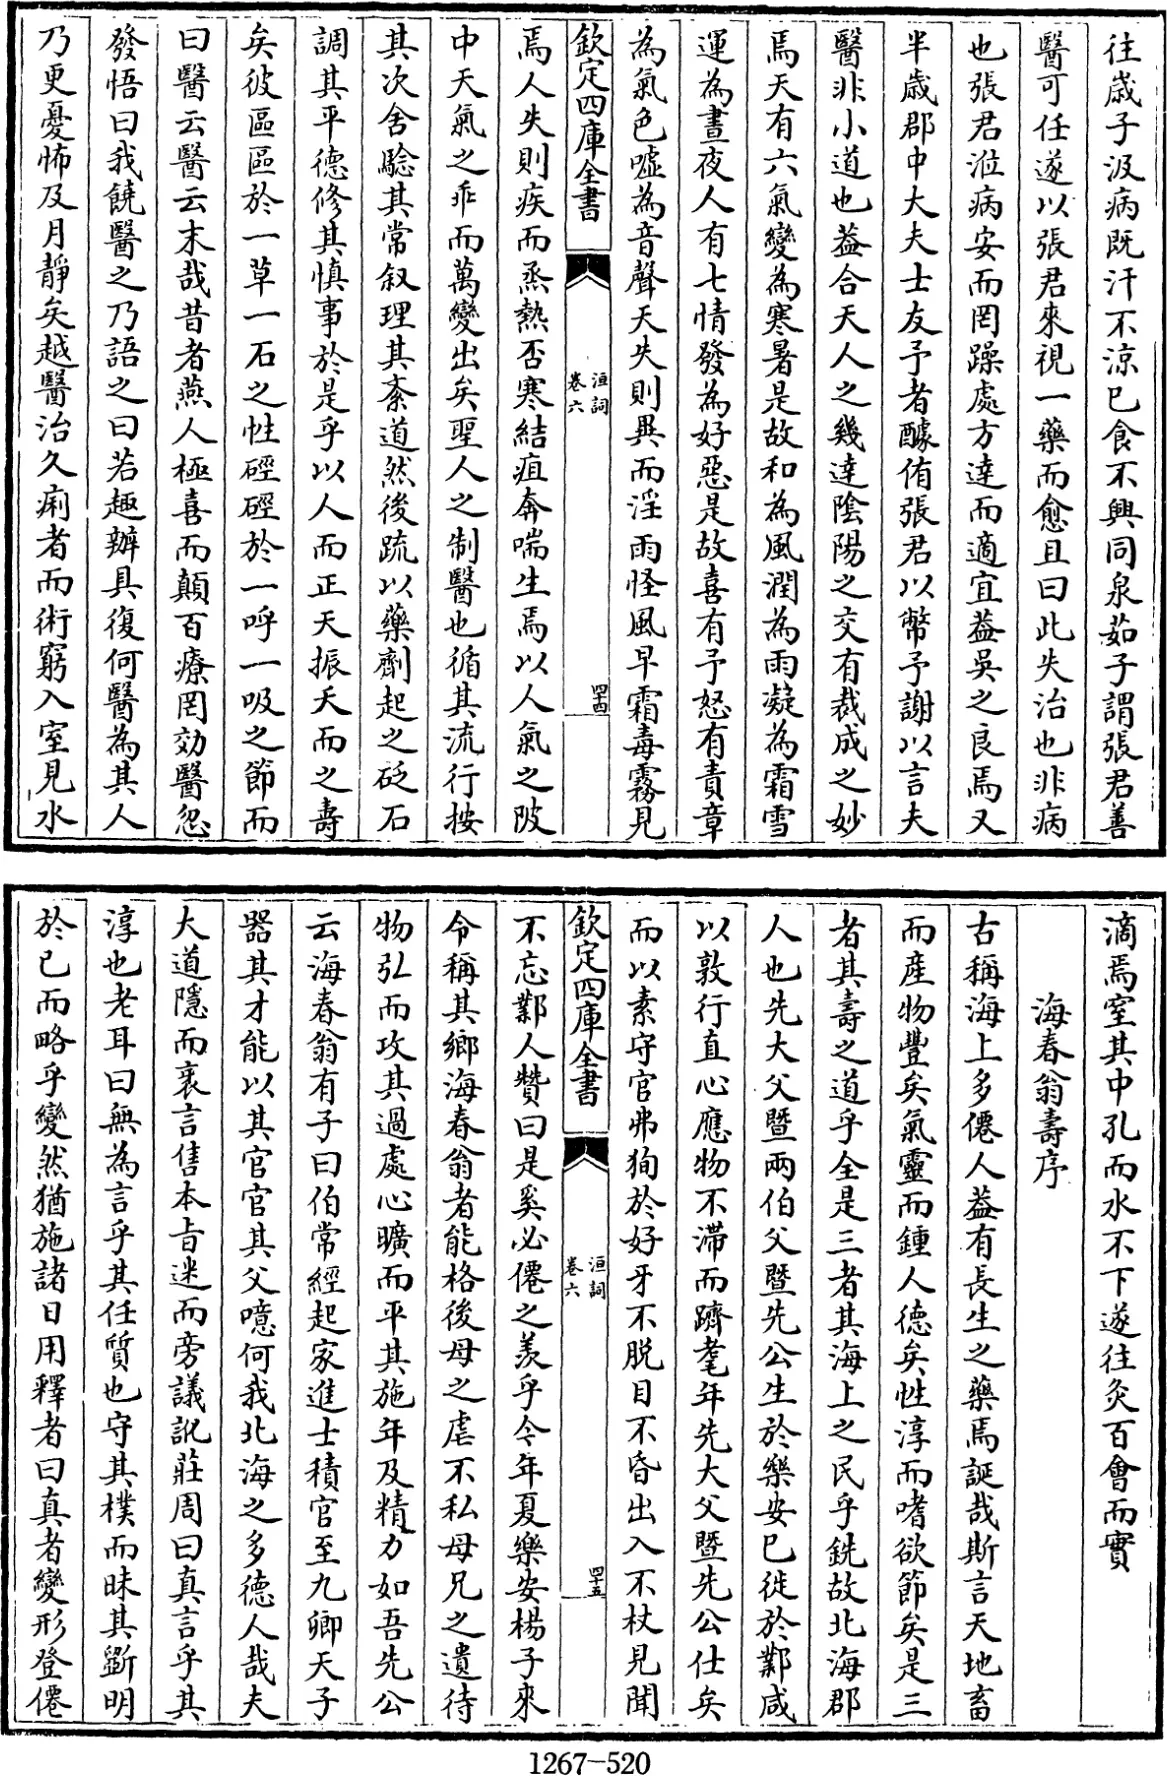 往歳子汲病既汗不涼已食不興同泉茹子謂張君善
醫可任遂以張君來視一藥而愈且曰此失治也非病
也張君涖病安而罔躁處方達而適宜葢吳之良焉又
半歳郡中大夫士友予者醵侑張君以幣予謝以言夫
醫非小道也葢合天人之幾達陰陽之交有裁成之妙
焉天有六氣變為寒暑是故和為風潤為雨凝為霜雪
運為晝夜人有七情發為好惡是故喜有予怒有責章
為氣色噓為音聲天失則異而淫雨怪風早霜毒霧見
欽定四庫全書
洹詞
卷六
四十四
焉人失則疾而烝熱否寒結疽奔喘生焉以人氣之陂
中天氣之乖而萬變出矣聖人之制醫也循其流行按
其次舍騐其常叙理其紊道然後疏以藥劑起之砭石
調其平德修其慎事於是乎以人而正天振夭而之壽
矣彼區區於一草一石之性硜硜於一呼一吸之節而
曰醫云醫云末哉昔者燕人極喜而顛百療罔効醫忽
發悟曰我饒醫之乃語之曰若趣辦具復何醫為其人
乃更憂怖及月靜矣越醫治久痢者而術窮入室見水
滴焉窒其中孔而水不下遂往灸百會而實
海春翁壽序
古稱海上多僊人葢有長生之藥焉誕哉斯言天地畜
而産物豐矣氣靈而鍾人德矣性淳而嗜欲節矣是三
者其壽之道乎全是三者其海上之民乎銑故北海郡
人也先大父暨兩伯父暨先公生於樂安已徙於鄴咸
以敦行直心應物不滯而躋耄年先大父暨先公仕矣
而以素守官弗狥於好牙不脱目不昏出入不杖見聞
欽定四庫全書
洹詞
卷六
四十五
不忘鄴人贊曰是奚必僊之羨乎今年夏樂安楊子來
令稱其鄉海春翁者能格後母之虐不私母兄之遺待
物弘而攻其過處心曠而平其施年及精力如吾先公
云海春翁有子曰伯常經起家進士積官至九卿天子
器其才能以其官官其父噫何我北海之多德人哉夫
大道隱而衺言售本旨迷而旁議訛莊周曰真言乎其
淳也老耳曰無為言乎其任質也守其樸而昧其斵明
於已而略乎變然猶施諸日用釋者曰真者變形登僊
1267-520